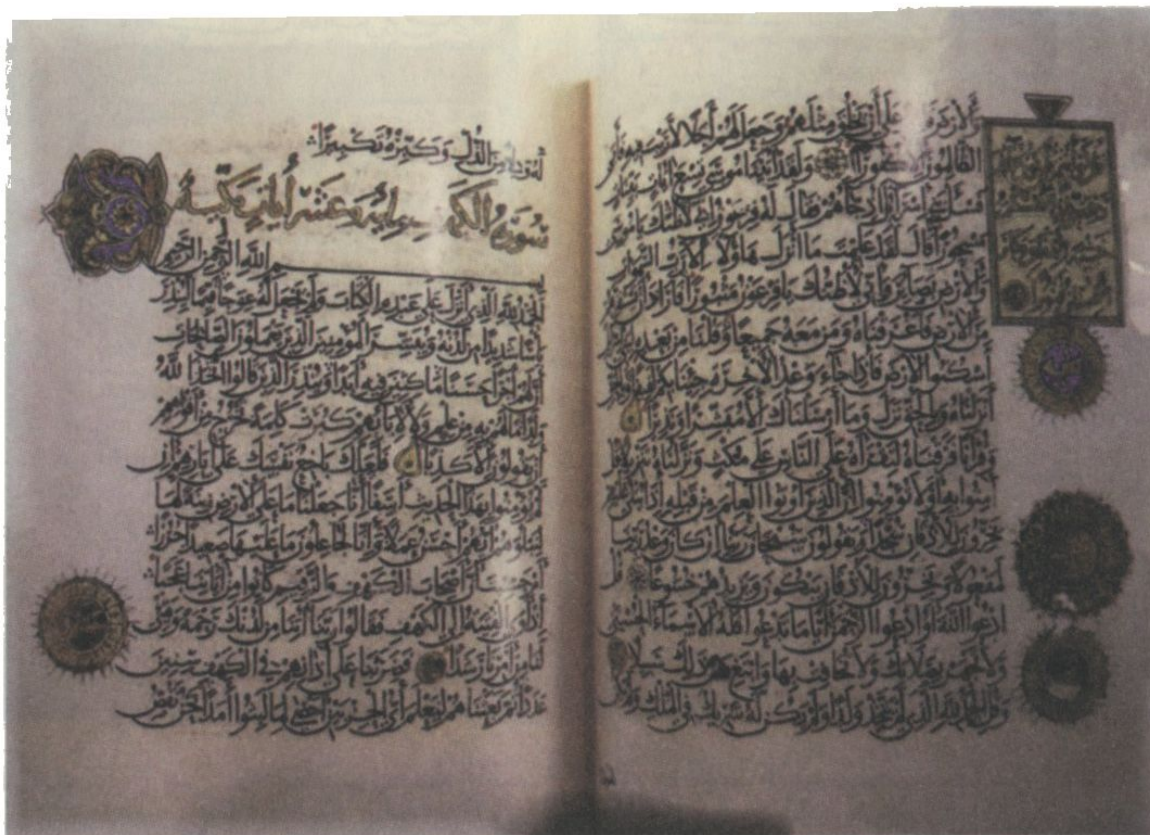 والارض قادر على أن يخلق مثلهم وجعل لهم أجلا لا ريب فيه فأبى
الظالمون الا كفورا ولقد آتينا موسى تسع آيات بينات
فسئل بني اسرائيل اذ جاءهم فقال له فرعون اني لأظنك يا موسى
مسحورا قال لقد علمت ما أنزل هاؤلاء الا رب السموات
والارض بصائر واني لأظنك يا فرعون مثبورا فأراد أن يستفزهم
من الارض فأغرقناه ومن معه جميعا وقلنا من بعده لبني اسرائيل
اسكنوا الارض فاذا جاء وعد الآخرة جئنا بكم لفيفا وبالحق
أنزلناه وبالحق نزل وما أرسلناك الا مبشرا ونذيرا
وقرآنا فرقناه لتقرأه على الناس على مكث ونزلناه تنزيلا قل
آمنوا به أو لا تؤمنوا ان الذين أوتوا العلم من قبله اذا يتلى عليهم
يخرون للأذقان سجدا ويقولون سبحان ربنا ان كان وعد ربنا
لمفعولا ويخرون للأذقان يبكون ويزيدهم خشوعا قل
ادعوا الله أو ادعوا الرحمن أيا ما تدعوا فله الأسماء الحسنى
ولا تجهر بصلاتك ولا تخافت بها وابتغ بين ذلك سبيلا
وقل الحمد لله الذي لم يتخذ ولدا ولم يكن له شريك في الملك ولم يكن
له ولي من الذل وكبره تكبيرا
سورة الكهف مائة وعشر آيات مكية
بسم الله الرحمن الرحيم
الحمد لله الذي أنزل على عبده الكتاب ولم يجعل له عوجا قيما لينذر
بأسا شديدا من لدنه ويبشر المؤمنين الذين يعملون الصالحات
أن لهم أجرا حسنا ماكثين فيه أبدا وينذر الذين قالوا اتخذ الله
ولدا ما لهم به من علم ولا لآبائهم كبرت كلمة تخرج من أفواههم
ان يقولون الا كذبا فلعلك باخع نفسك على آثارهم ان
لم يؤمنوا بهذا الحديث أسفا انا جعلنا ما على الارض زينة لها
لنبلوهم أيهم أحسن عملا وانا لجاعلون ما عليها صعيدا جرزا
أم حسبت أن أصحاب الكهف والرقيم كانوا من آياتنا عجبا
اذ أوى الفتية الى الكهف فقالوا ربنا آتنا من لدنك رحمة وهيئ
لنا من أمرنا رشدا فضربنا على آذانهم في الكهف سنين
عددا ثم بعثناهم لنعلم أي الحزبين أحصى لما لبثوا أمدا نحن نقص